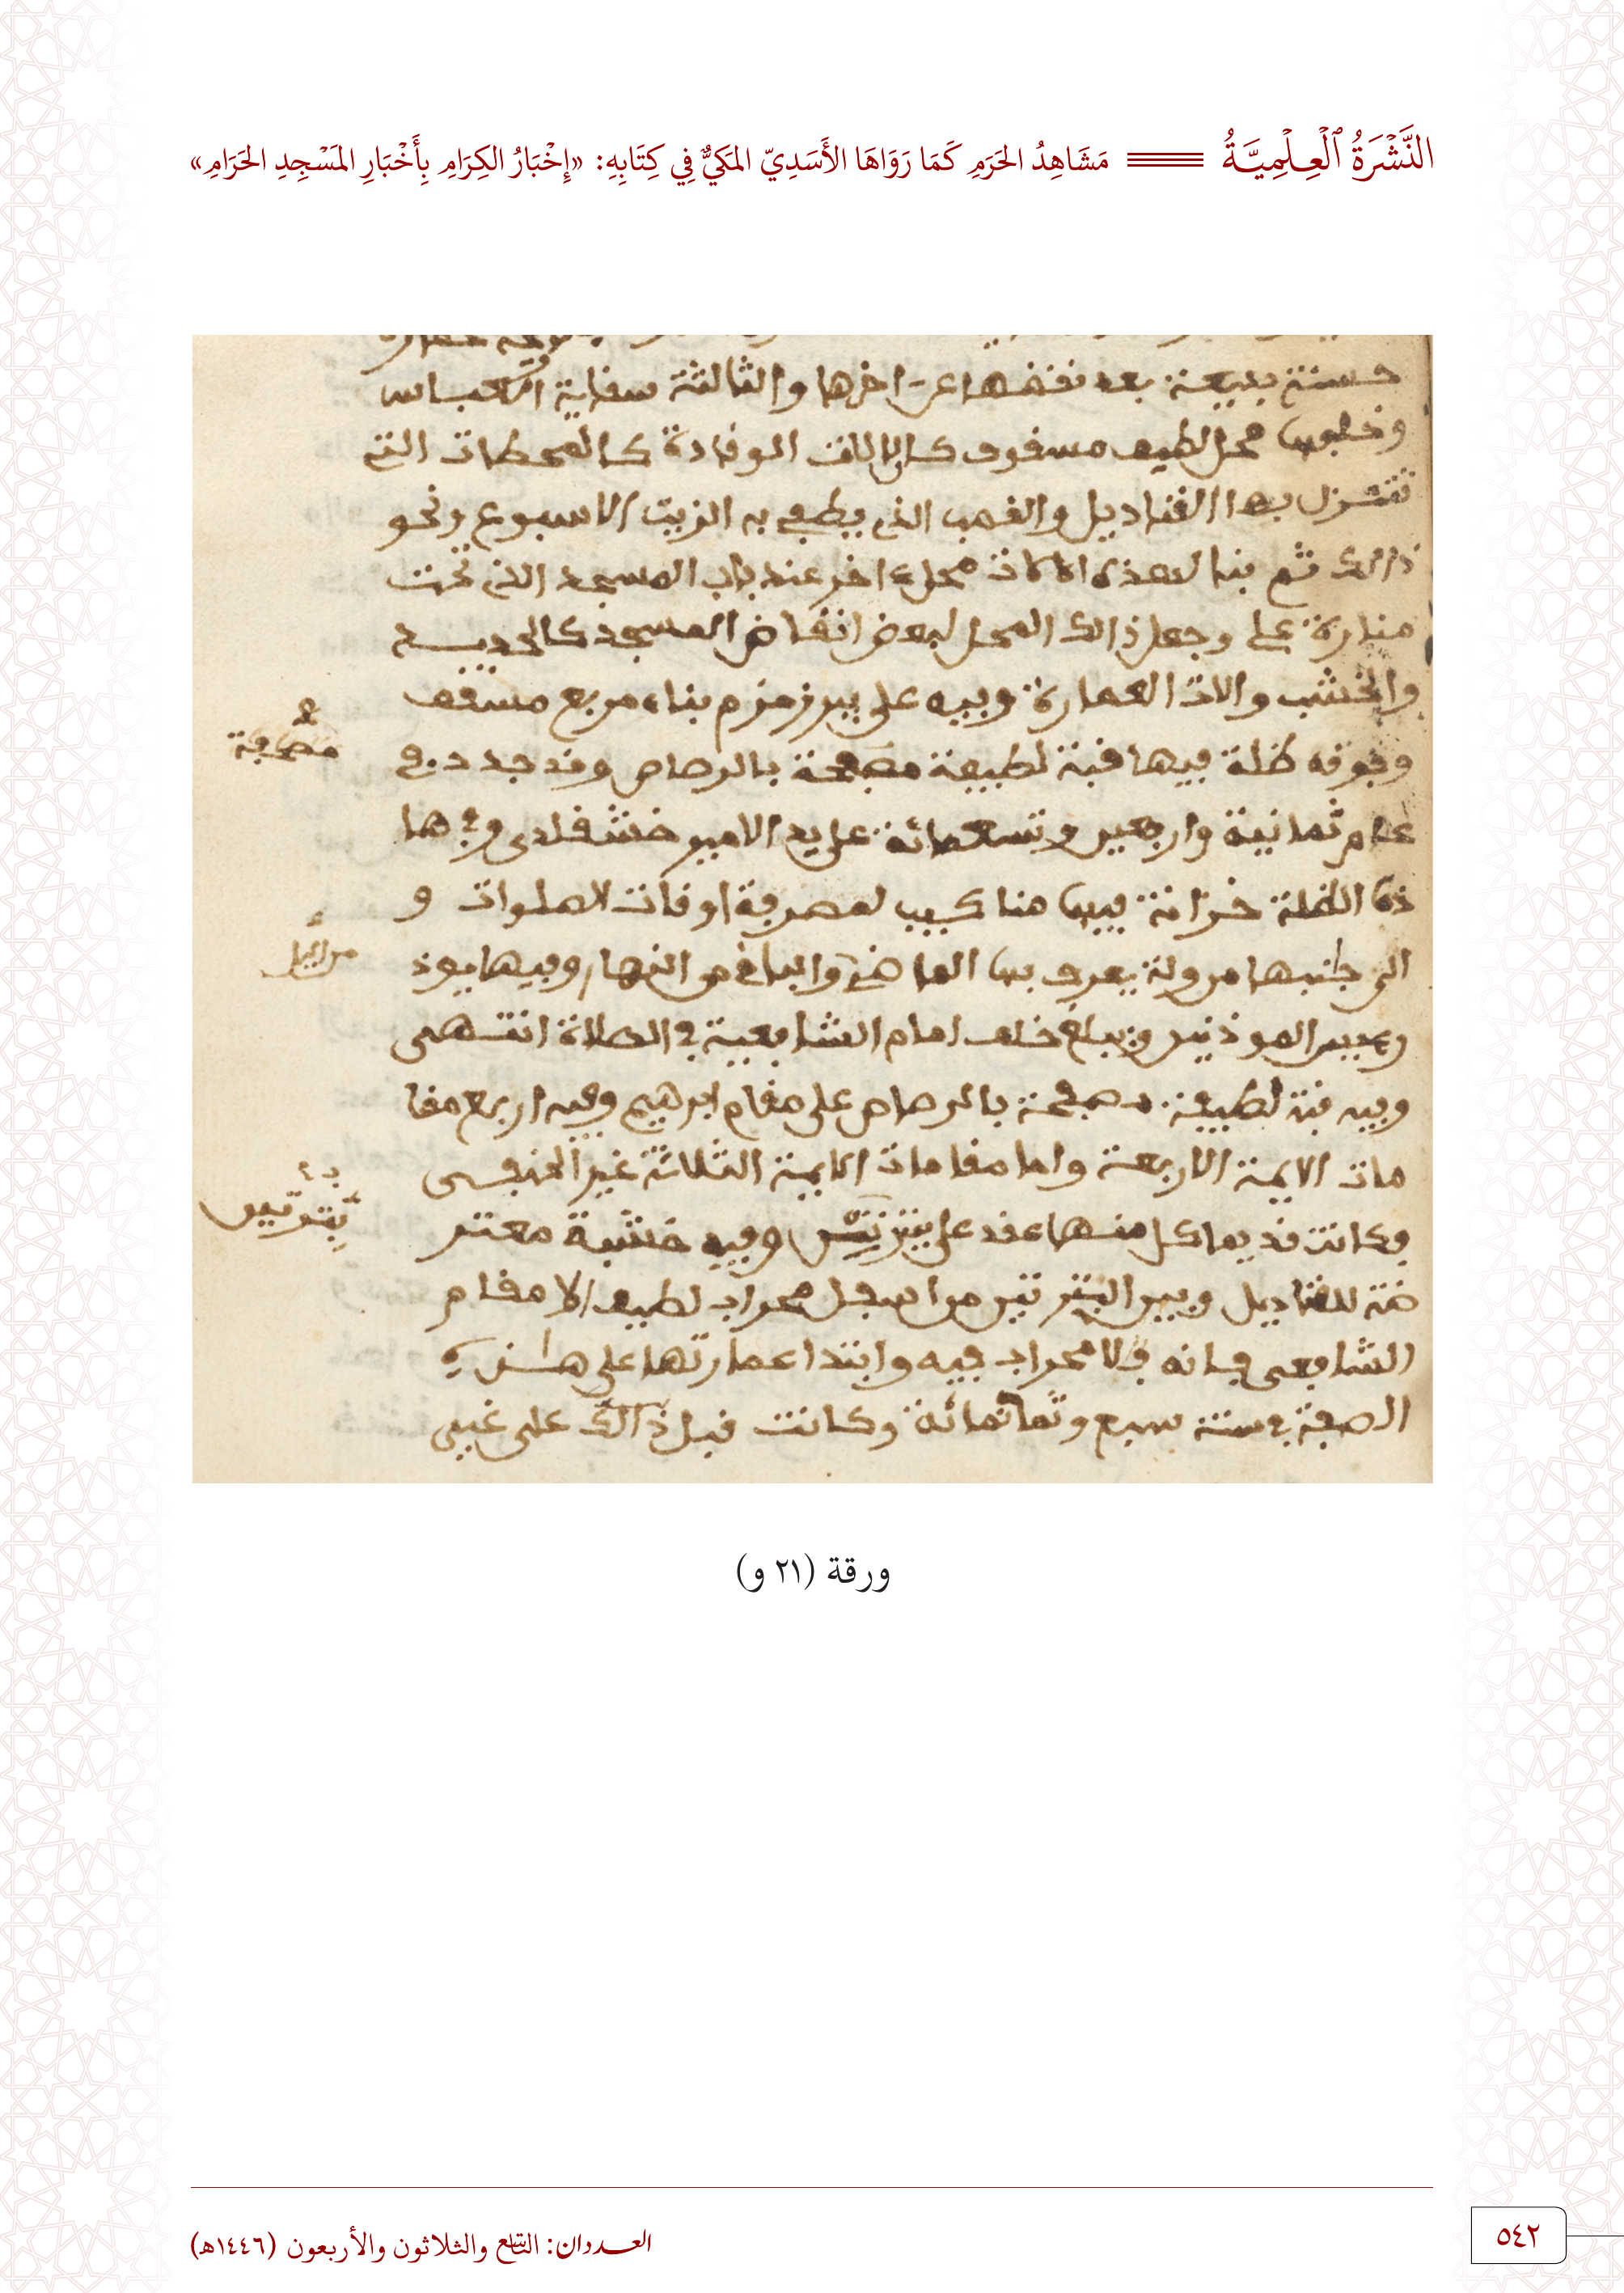 النَّشْرَةُ ٱلْعِلْمِيَّةُ مَشَاهِدُ الحَرَمِ كَمَا رَوَاهَا الأَسَدِيّ المَكيٌّ فِي كِتَابِهِ: «إِخْبَارُ الكِرَامِ بِأَخْبَارِ المَسْجِدِ الحَرَامِ»
حسنة بديعة بعد نقضها عن اخرها والثالثة سقاية العباس
محل لطيف مسقوف الوقادة كالمحطات التي
تنزل بها القناديل والقصب الذي يطفي به الزيت الاسبوع ونحو
ذالك ثم بنا لهذه الالات محلا اخر عند باب المسجد الذي تحت
منارة علي وجعل ذالك المحل لبعض انقاض المسجد كالحديد
والخشب والات العمارة وفيه على بير زمزم بناء مربع مسقف
وفوقه ظلة فيها قبة لطيفة مصفحة بالرصاص وقد جدد في
مصفحة
عام ثمانية واربعين وتسعمائة على يد الامير خشقلدي وفي ها
ذه الظلة خزانة فيها مناكيب لمعرفة اوقات الصلوات و
الى جنبها مزولة يعرف بها الماضي والباقي من النهار وفيها يوذ
مزاييل
ن رييس الموذنين ويبلغ خلف امام الشافعية في الصلاة انتهى
وفيه قبة لطيفة مصفحة بالرصاص على مقام ابرهيم وفيه اربع مقا
مات الايمة الاربعة واما مقامات الايمة الثلاثة غير الحنفي
فكانت قديما كل منها عقد على وفيه خشبة معتر
بترتين
ضة للقناديل وبين البترتين من اسفل محراب لطيف الا مقام
الشافعي فانه لا محراب فيه وابتدا عمارتها على هذه
الصفة في سنة سبع وثمانمائة وكانت قبل ذالك على غير
ورقة (٢١ و)
العددان: التاسع والثلاثون والأربعون (١٤٤٦هـ)
٥٤٢